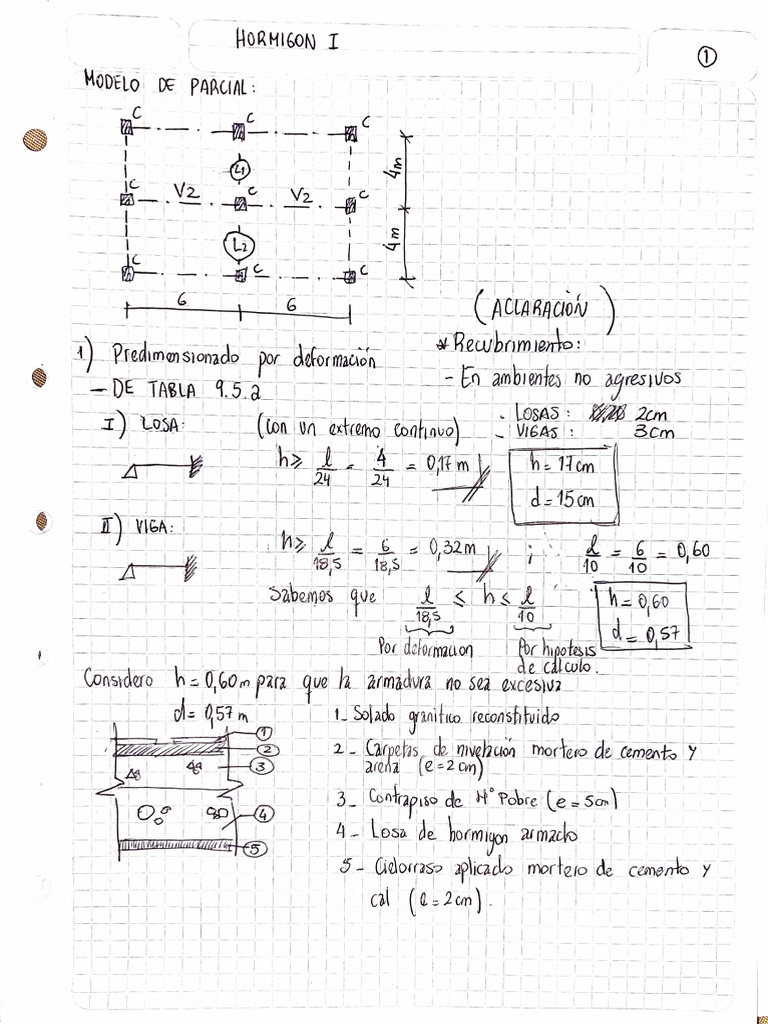 HORMIGON I
1
MODELO DE PARCIAL:
C C C
L1
4m
C V2 C V2 C
L2
4m
C C C
6 6
(ACLARACIÓN)
1) Predimensionado por deformación
* Recubrimiento:
- En ambientes no agresivos
- DE TABLA 9.5.a
- LOSAS: 2cm
- VIGAS: 3cm
I) LOSA: (con un extremo continuo)
h ≥ l/24 = 4/24 = 0,17 m
h = 17cm
d = 15cm
II) VIGA:
h ≥ l/18,5 = 6/18,5 = 0,32m ; l/10 = 6/10 = 0,60
Sabemos que l/18,5 ≤ h ≤ l/10
h = 0,60
d = 0,57
Por deformacion Por hipotesis de cálculo.
Considero h = 0,60m para que la armadura no sea excesiva
d = 0,57 m
1
2
3
4
5
1- Solado granitico reconstituido
2- Carpetas de nivelación mortero de cemento y
arena (e = 2cm)
3- Contrapiso de Hº Pobre (e = 5cm)
4- Losa de hormigon armado
5- Cielorraso aplicado mortero de cemento y
cal (e = 2cm).